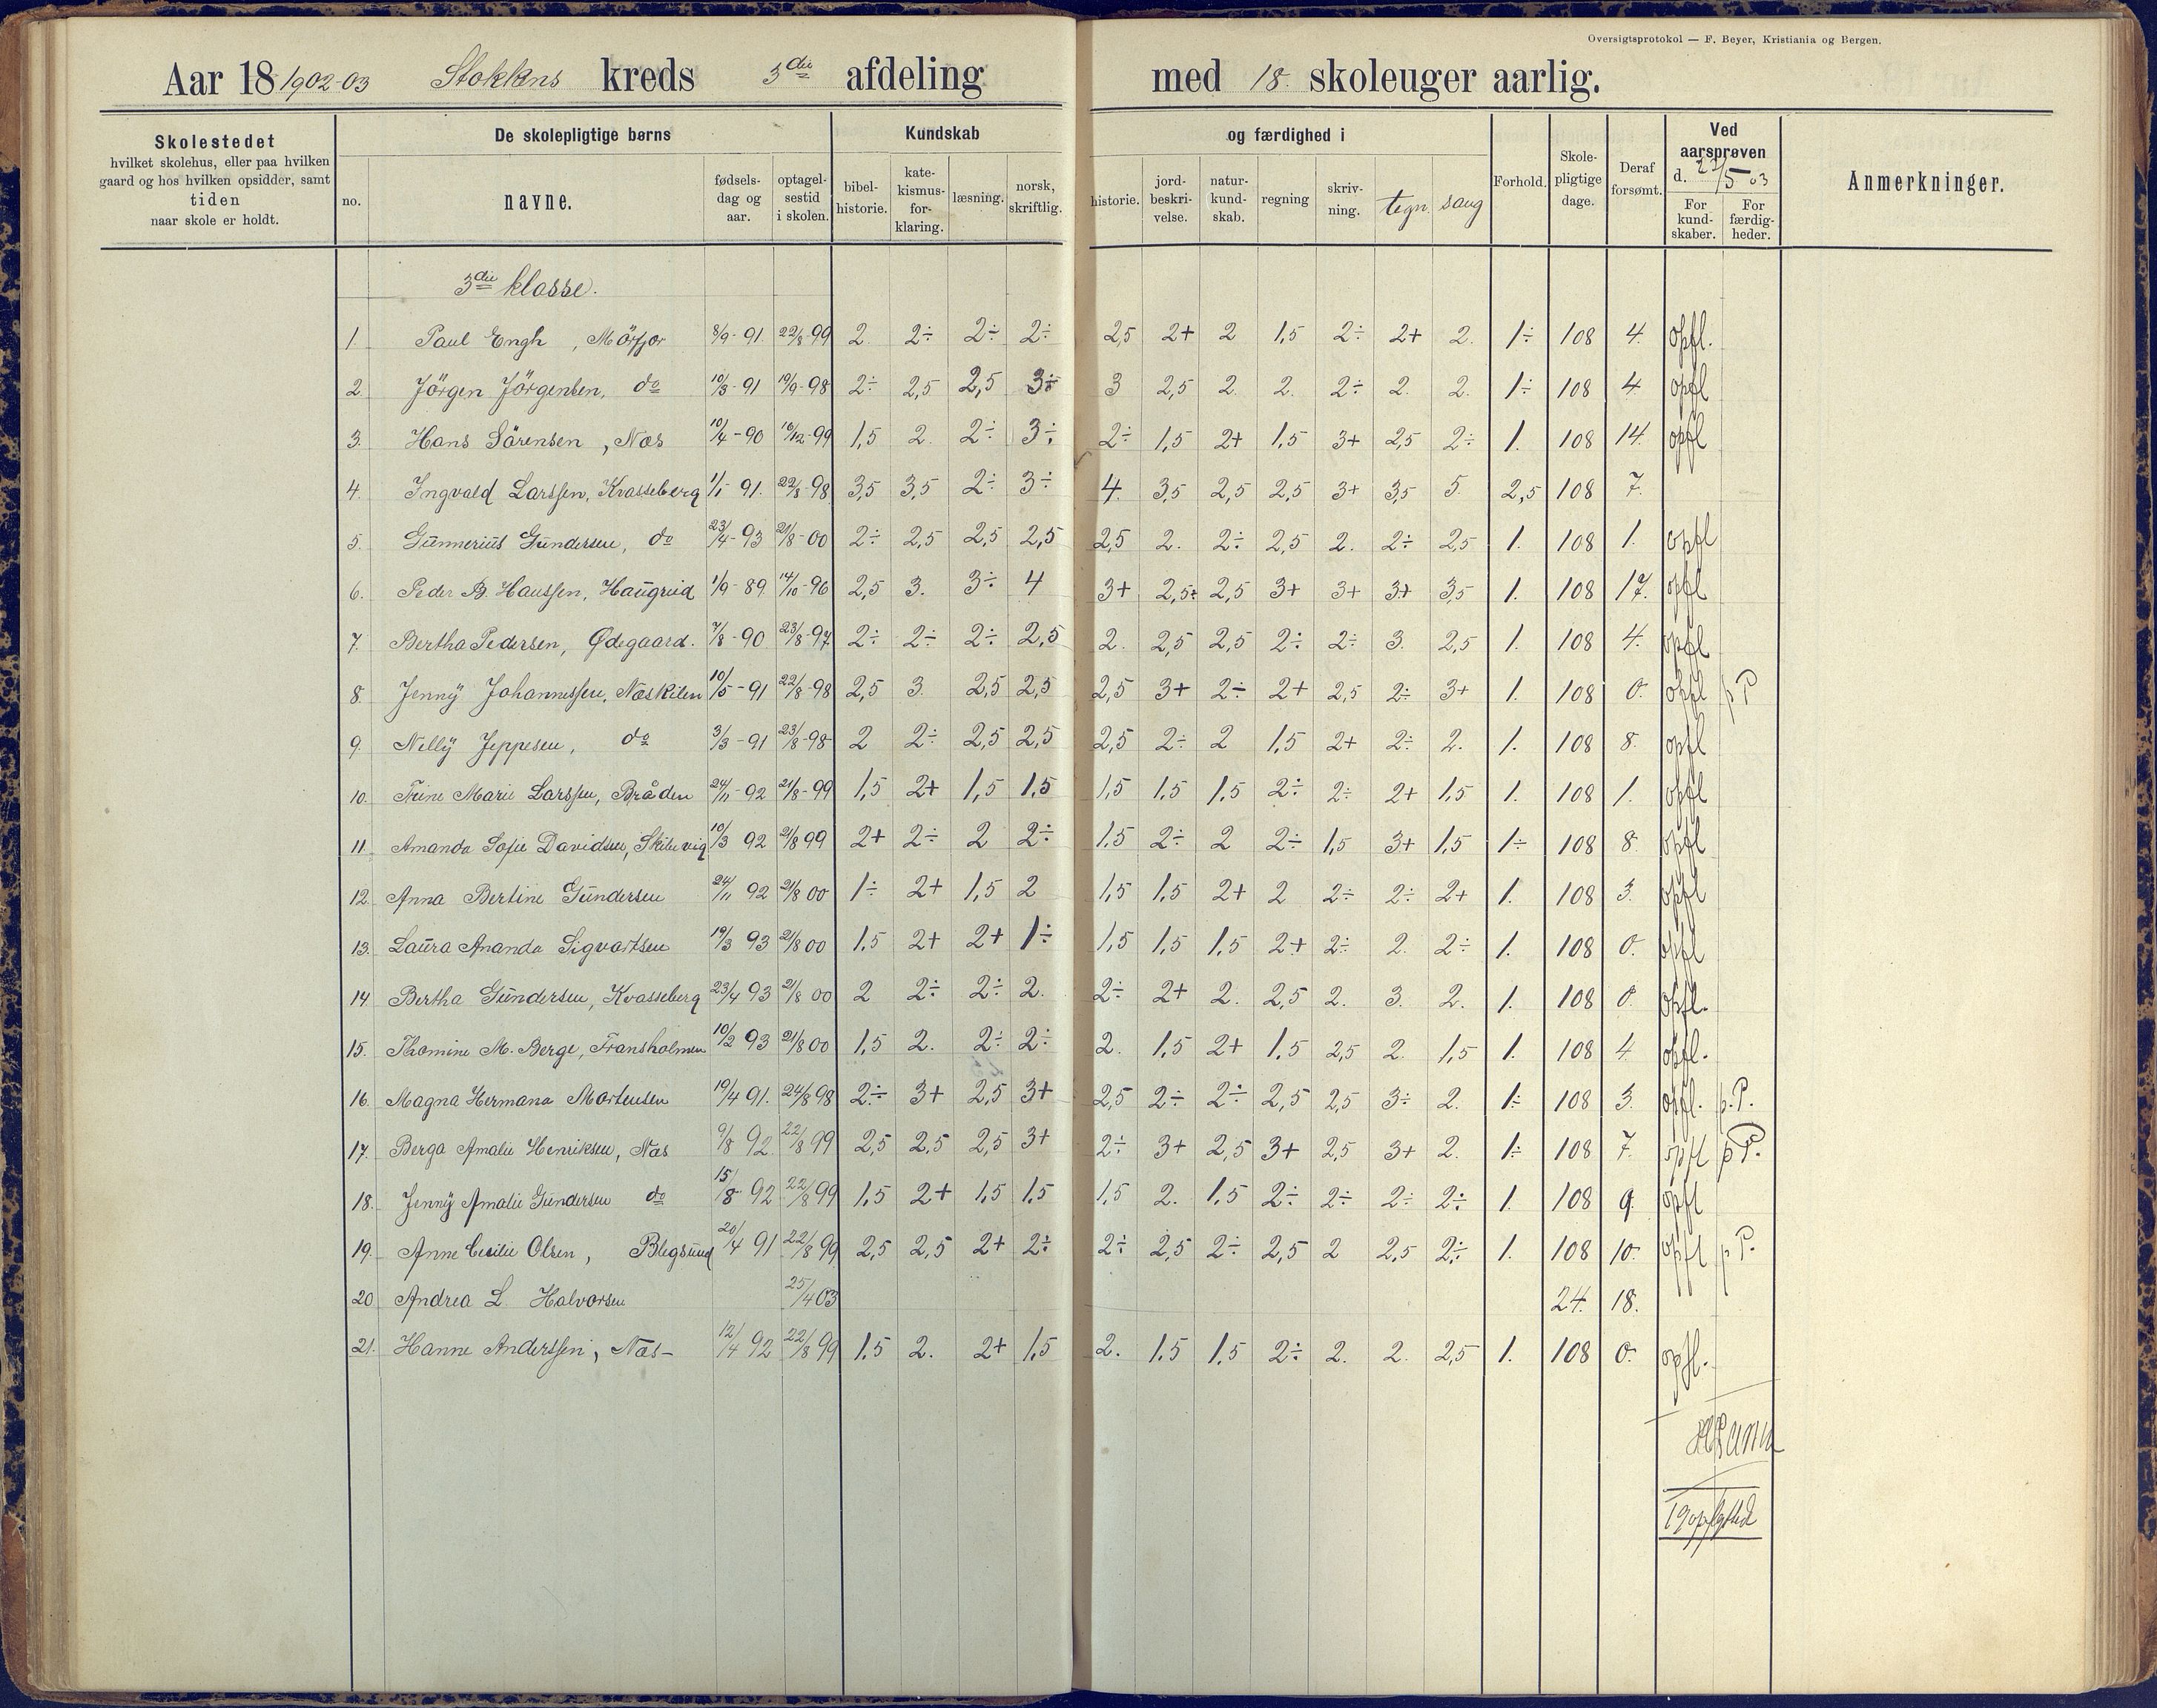 Oversigtsprotokol — F. Beyer, Kristiania og Bergen.
Aar 18 1902-03 Stokkens kreds 3die afdeling med 18. skoleuger aarlig.
Skolestedet hvilket skolehus, eller paa hvilken gaard og hos hvilken opsidder, samt tiden naar skole er holdt.
De skolepligtige børns
no. navne. fødselsdag og aar. optagelsestid i skolen.
Kundskab og færdighed i
bibelhistorie. katekismusforklaring. læsning. norsk, skriftlig. historie. jordbeskrivelse. naturkundskab. regning skrivning. tegn. sang
Forhold. Skolepligtige dage. Deraf forsømt.
Ved aarsprøven d. 27/5 03
For kundskaber. For færdigheder.
Anmerkninger.
3die klasse.
1. Paul Engh, Mörfjor 8/9-91 22/8-99 2. 2÷ 2÷ 2÷ 2,5 2+ 2 1,5 2÷ 2+ 2. 1÷ 108 4. opfl.
2. Jörgen Jörgensen, do 10/3-91 19/9-98 2÷ 2,5 2,5 3÷ 3 2,5 2. 2. 2÷ 2. 2. 1÷ 108 4 opfl
3. Hans Sörensen, Næs 10/4-90 16/12-99 1,5 2. 2÷ 3÷ 2÷ 1,5 2+ 1,5 3+ 2,5 2÷ 1. 108 14. opfl
4. Ingvald Larssen, Kvasseberg 1/1 91. 22/8-98 3,5 3,5 2÷ 3÷ 4. 3,5 2,5 2,5 3+ 3,5 5. 2,5 108 7.
5. Gunnerius Gundersen, do 23/4-93 21/8-00 2÷ 2,5 2,5 2,5 2,5 2. 2÷ 2,5 2. 2÷ 2,5 1. 108 1. opfl
6. Peder B. Hanssen, Haugrud 1/9-89. 14/10-96 2,5 3. 3÷ 4 3+ 2,5÷ 2,5 3+ 3+ 3+ 3,5 1. 108 17. opfl
7. Bertha Pedersen, Ødegaard. 7/8-90 23/8-97 2÷ 2÷ 2÷ 2,5 2. 2,5 2,5 2÷ 2÷ 3. 2,5 1. 108 4. opfl
8. Jenny Johannessen, Næskilen 10/5-91 22/8-98 2,5 3. 2,5 2,5 2,5 3+ 2÷ 2+ 2,5 2÷ 3+ 1. 108 0. opfl p P
9. Nelly Jeppesen, do 3/3-91 23/8-98 2 2÷ 2,5 2,5 2,5 2÷ 2 1,5 2+ 2÷ 2. 1. 108 8. opfl
10. Trine Marie Larssen, Bråden 24/11-92 21/8-99 1,5 2+ 1,5 1,5 1,5 1,5 1,5 2÷ 2÷ 2+ 1,5 1. 108 1. opfl
11. Amanda Sofie Davidsen, Skilevig 10/3 92 21/8 99 2+ 2÷ 2 2÷ 1,5 2÷ 2 2÷ 1,5 3+ 1,5 1÷ 108 8. opfl
12. Anna Bertine Gundersen 24/11 92 21/8 00 1÷ 2+ 1,5 2 1,5 1,5 2+ 2 2÷ 2÷ 2+ 1. 108 3. opfl
13. Laura Ananda Sigvartsen 19/3 93 21/8 00 1,5 2+ 2+ 1÷ 1,5 1,5 1,5 2+ 2÷ 2. 2÷ 1. 108 0. opfl
14. Bertha Gundersen, Kvasseberg 23/4 93 21/8 00 2 2÷ 2÷ 2. 2÷ 2+ 2. 2,5 2. 3. 2. 1. 108 0. opfl.
15. Thomine M. Berge, Fransholmen 10/2 93 21/8 00 1,5 2. 2÷ 2÷ 2. 1,5 2+ 1,5 2,5 2. 1,5 1. 108 4. opfl.
16. Magna Hermana Mortensen 19/4 91. 24/8 98 2÷ 3+ 2,5 3+ 2,5 2÷ 2÷ 2,5 2,5 3÷ 2. 1÷ 108 3. opfl. p.P.
17. Berga Amalie Henriksen, Næs 9/8 92. 22/8 99 2,5 2,5 2,5 3+ 2÷ 3+ 2,5 3+ 2,5 3+ 2. 1÷ 108 7. opfl p P.
18. Jenny Amalie Gundersen do 15/8 92 22/8 99 1,5 2+ 1,5 1,5 1,5 2. 1,5 2÷ 2÷ 2÷ 2÷ 1. 108 9. opfl
19. Anne Cecilie Olsen, Blegsund 20/4 91 22/8 99 2,5 2,5 2+ 2÷ 2÷ 2,5 2÷ 2,5 2 2,5 2÷ 1. 108 10. opfl p P.
20 Andrea L. Halvorsen 25/4 03 24. 18.
21. Hanne Anderssen, Næs- 12/4 92 22/8 99 1,5 2. 2+ 1,5 2. 1,5 1,5 2÷ 2. 2. 2,5 1. 108 0. opfl.
19 opflyttet